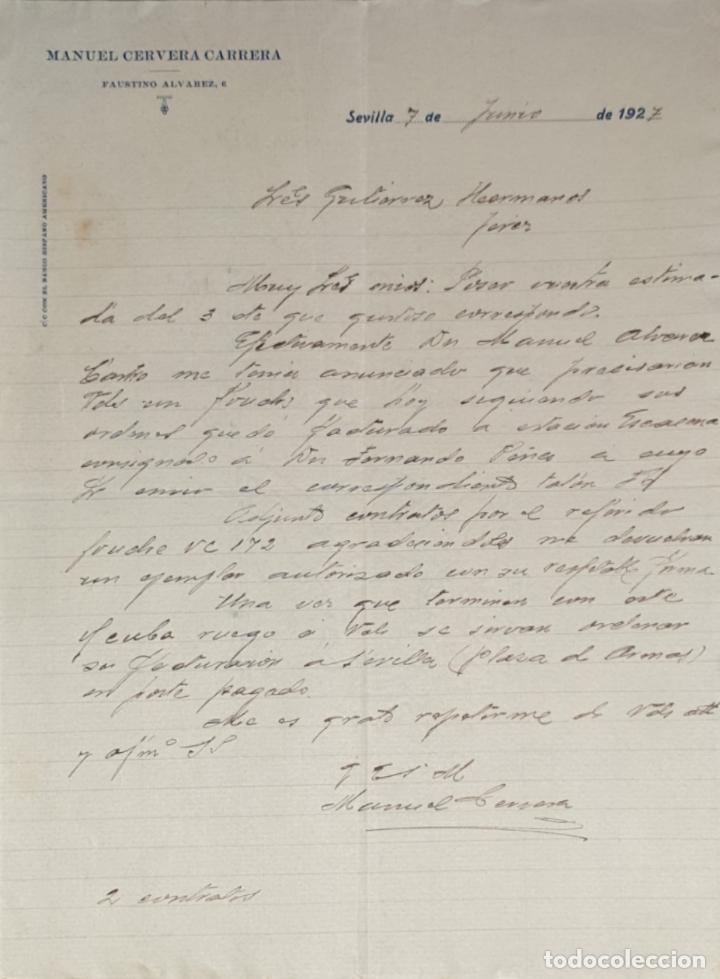 MANUEL CERVERA CARRERA
FAUSTINO ALVAREZ, 6
Sevilla 7 de Junio de 1927
C/C CON EL BANCO HISPANO AMERICANO
Sres Gutierrez Hermanos
Jerez
Muy Sres mios: Poseo vuestra estima-
da del 3 de que gustoso correspondo.
Efectivamente Dn Manuel Alvarez
me tenia anunciado que precisarian
Vds un foudre que hoy siguiendo sus
ordenes quedó facturado a estación Escacena
consignado á Dn Fernando Pérez a cuyo
Sr envio el correspondiente talón
Adjunto contratos por el referido
foudre VC 172 agradeciendoles me devuelvan
un ejemplar autorizado con su respetable firma
Una vez que terminen con este
ruego á Vds se sirvan ordenar
su facturación á Sevilla (plaza de Armas)
en porte pagado.
Me es grato repetirme de Vds att
y afmo SS
q e s m
Manuel Cervera
2 contratos
todocoleccion